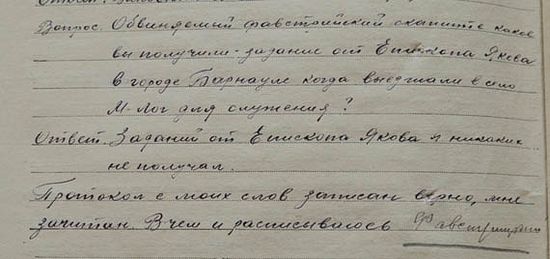 Вопрос. Обвиняемый Фавстрийский скажите какое
вы получили задание от Епископа Якова
в городе Барнауле когда выезжали в село
М-Лог для служения?
Ответ. Заданий от Епископа Якова я никаких
не получал.
Протокол с моих слов записан верно, мне
зачитан. В чем и расписываюсь